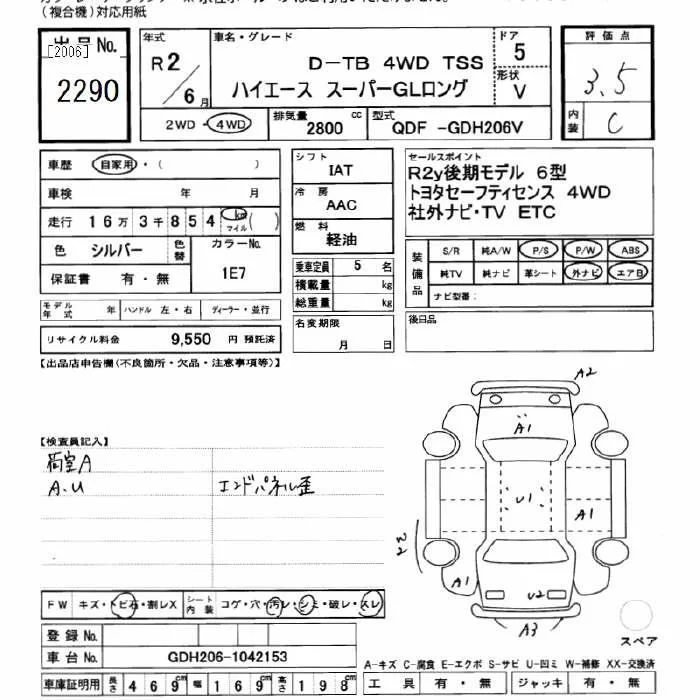 (複合機)対応用紙
出品No.
[2006]
2290
年式
R2/6月
車名・グレード
D-TB 4WD TSS
ハイエース スーパーGLロング
ドア
5
形状
V
評価点
3.5
内装
C
2WD・4WD
排気量
2800 cc
型式
QDF -GDH206V
車歴 自家用・( )
車検 年 月
走行 16万3千854 km マイル( )
色 シルバー 色替
カラーNo.
1E7
保証書 有・無
モデル年式 年 ハンドル 左・右 ディーラー・並行
リサイクル料金 9,550 円 預託済
シフト
IAT
冷房
AAC
燃料
軽油
乗車定員 5 名
積載量 kg
総重量 kg
名変期限
月 日
セールスポイント
R2y後期モデル 6型
トヨタセーフティセンス 4WD
社外ナビ・TV ETC
装備品
S/R 純A/W P/S P/W ABS
純TV 純ナビ 革シート 外ナビ エアB
ナビ型番:
後日品
【出品店申告欄(不良箇所・欠品・注意事項等)】
【検査員記入】
荷室A
A.U エンドパネル歪
A2
A1
U1
A1
W2
A1
U2
A3
FW キズ・トビ石・割レX
シート内装 コゲ・穴・汚レ・シミ・破レ・スレ
登録No.
車台No. GDH206-1042153
車庫証明用 長さ 469cm 幅 169cm 高さ 198cm
スペア
A-キズ C-腐食 E-エクボ S-サビ U-凹ミ W-補修 XX-交換済
工具 有・無 ジャッキ 有・無